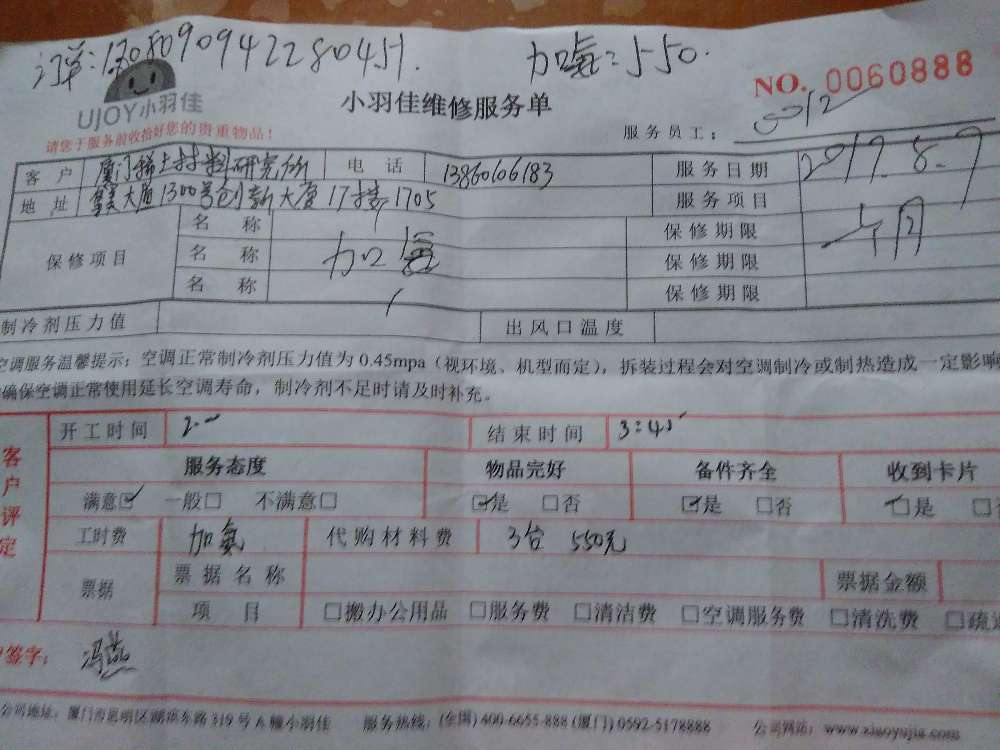 订单:1308090942280451. 加氟=550.
UJOY小羽佳
小羽佳维修服务单
NO. 0060888
请您于服务前收拾好您的贵重物品！
服务员工： 5012
客 户 厦门稀土材料研究所 电 话 13860606183 服务日期 2017.8.9
地 址 大厦1300号创新大厦17楼1705 服务项目
保修项目 名 称 加氟 保修期限
名 称 保修期限
名 称 保修期限
制冷剂压力值 出风口温度
空调服务温馨提示：空调正常制冷剂压力值为 0.45mpa（视环境、机型而定），拆装过程会对空调制冷或制热造成一定影响
确保空调正常使用延长空调寿命，制冷剂不足时请及时补充。
客户评定
开工时间 结束时间 3:45
服务态度 物品完好 备件齐全 收到卡片
满意☑ 一般□ 不满意□ ☑是 □否 ☑是 □否 ☑是 □
工时费 加氟 代购材料费 3台 550元
票据 票据名称 票据金额
项 目 □搬办公用品 □服务费 □清洁费 □空调服务费 □清洗费 □疏
签字： 冯燕
公司地址：厦门市思明区湖滨东路319号A幢小羽佳 服务热线：(全国) 400-6655-888 (厦门) 0592-5178888 公司网站：www.xiaoyujia.com